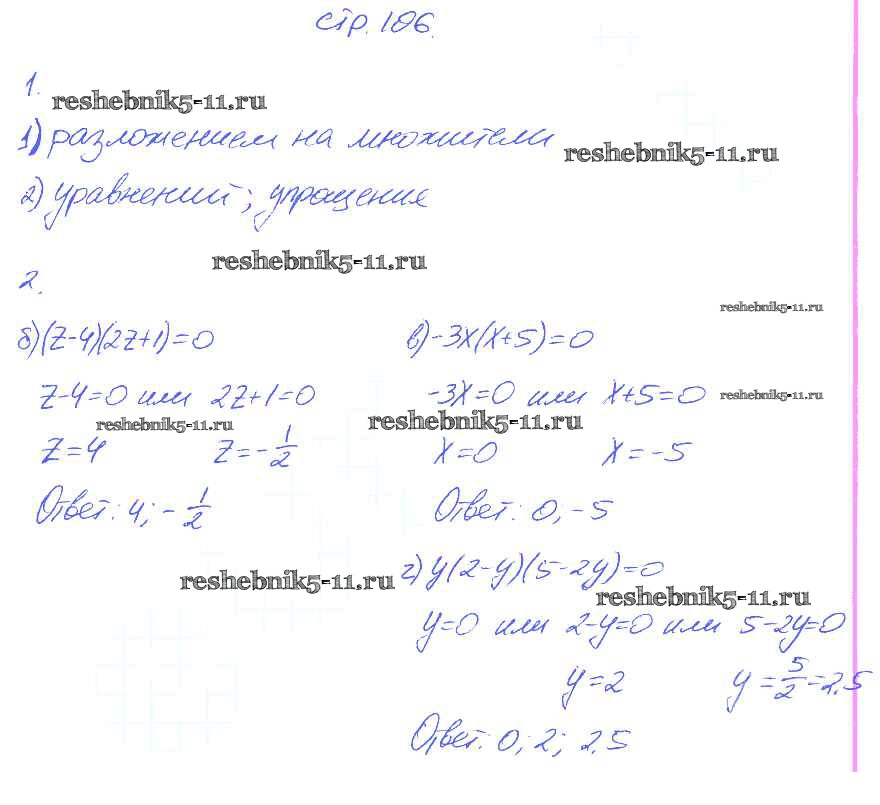 стр. 106.
1.
reshebnik5-11.ru
1) разложением на множители
reshebnik5-11.ru
2) уравнений; упрощения
reshebnik5-11.ru
2.
reshebnik5-11.ru
б) (z-4)(2z+1)=0
z-4=0 или 2z+1=0
reshebnik5-11.ru
z=4 z=-1/2
Ответ: 4; -1/2
в) -3x(x+5)=0
-3x=0 или x+5=0
reshebnik5-11.ru
reshebnik5-11.ru
x=0 x=-5
Ответ: 0; -5
reshebnik5-11.ru
г) y(2-y)(5-2y)=0
reshebnik5-11.ru
y=0 или 2-y=0 или 5-2y=0
y=2 y=5/2=2.5
Ответ: 0; 2; 2.5